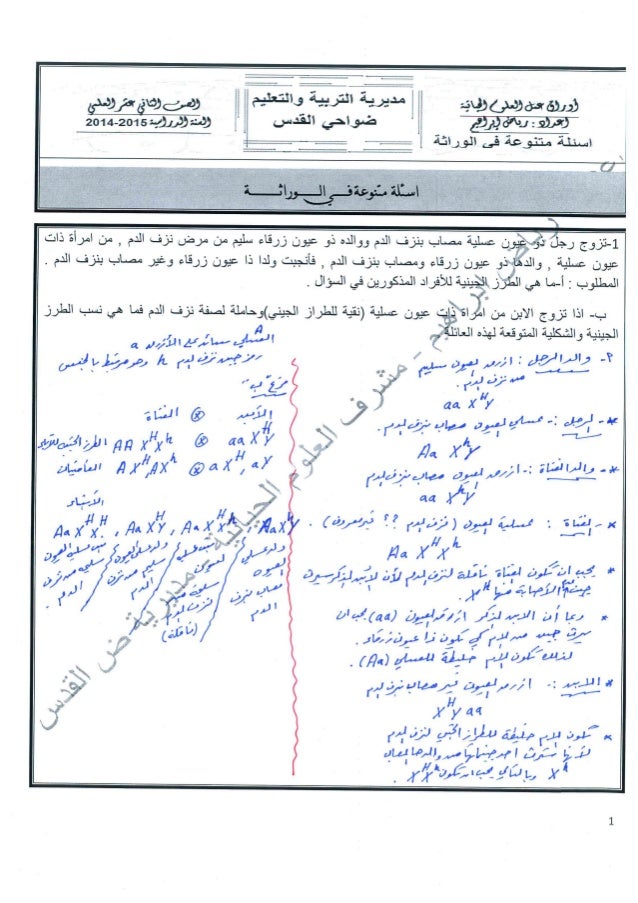 أوراق عمل العلوم الحياتية
اعداد : رياض ابراهيم
اسئلة متنوعة في الوراثة
مديرية التربية والتعليم
ضواحي القدس
الصف الثاني عشر العلمي
السنة الدراسية 2015-2014
اسئلة متنوعة في الوراثة
1-تزوج رجل ذو عيون عسلية مصاب بنزف الدم ووالده ذو عيون زرقاء سليم من مرض نزف الدم , من امرأة ذات
عيون عسلية , والدها ذو عيون زرقاء ومصاب بنزف الدم , فأنجبت ولدا ذا عيون زرقاء وغير مصاب بنزف الدم .
المطلوب : أ-ما هي الطرز الجينية للأفراد المذكورين في السؤال .
ب- اذا تزوج الابن من امرأة ذات عيون عسلية (نقية للطراز الجيني)وحاملة لصفة نزف الدم فما هي نسب الطرز
الجينية والشكلية المتوقعة لهذه العائلة
أ- والد الرجل : أزرق العيون سليم
من نزف الدم .
aa X^H Y
*- الرجل : عسلي العيون مصاب بنزف الدم .
Aa X^h Y
*- والد الفتاة :- أزرق العيون مصاب بنزف الدم
aa X^h Y
*- الفتاة : عسلية العيون (نزف الدم ?? غير معروف) .
Aa X^H X^h
* يجب ان تكون الفتاة ناقلة لنزف الدم لأن الابن الذكر سيرث
X^H
* وبما أن الابن الذكر أزرق العيون (aa) يجب ان
يرث جين من الام كي يكون ذا عيون زرقاء.
لذلك تكون الام خليطة للعسلي (Aa).
* الابن :- أزرق العيون غير مصاب بنزف الدم
X^H Y aa
* تكون الام خليطة للطراز الجيني لنزف الدم
لأنها سترث احد جيناتها من والدها المصاب
X^h وبالتالي يجب ان تكون X^H X^h .
العسلي A سائد على الأزرق a
رمز جين نزف الدم h وهو مرتبط بالجنس
فرع "ب"
الابن ⊗ الفتاة
aa X^H Y ⊗ AA X^H X^h الطرز الجينية للآباء
aX^H , aY ⊗ AX^H , AX^h الجاميتات
الأبناء
AaX^H X^H , AaX^H Y , AaX^H X^h , AaX^h Y
بنت عسلي العيون سليمة من نزف الدم .
ولد عسلي العيون سليم من نزف الدم
بنت عسلي العيون سليمة من نزف الدم (ناقلة)
ولد عسلي العيون مصاب بنزف الدم
رياض ابراهيم - مشرف العلوم الحياتية - مديرية ض القدس
1